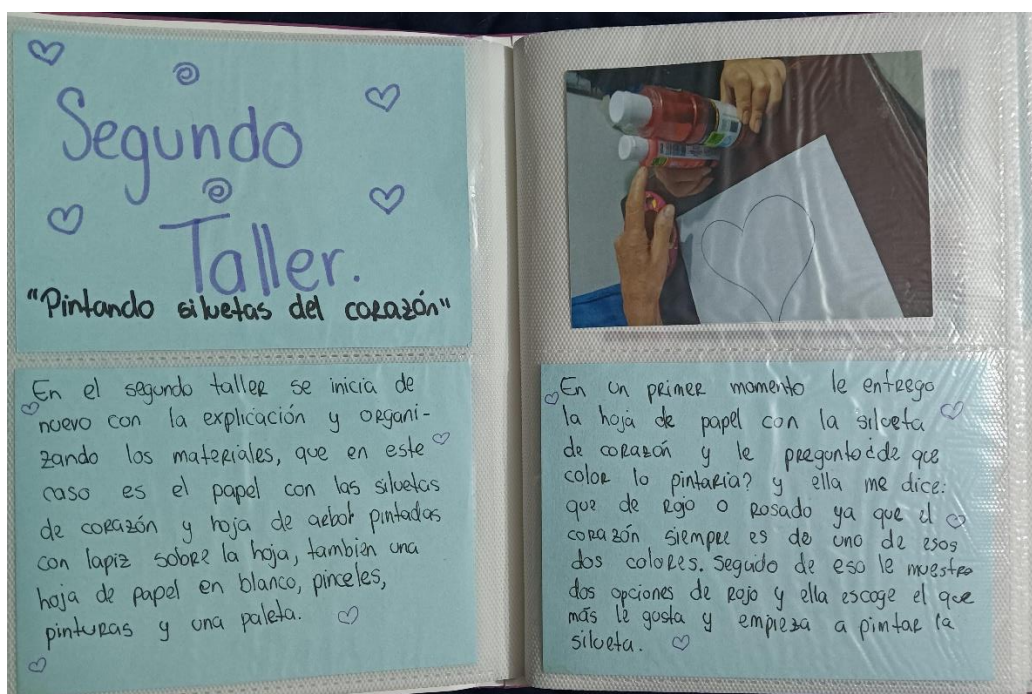 Segundo
Taller.
"Pintando siluetas del corazón"
En el segundo taller se inicia de
nuevo con la explicación y organi-
zando los materiales, que en este
caso es el papel con las siluetas
de corazón y hoja de aebol pintadas
con lapiz sobre la hoja, tambien una
hoja de papel en blanco, pinceles,
pinturas y una paleta.
En un primer momento le entrego
la hoja de papel con la silueta
de corazón y le pregunto ¿de que
color lo pintaria? y ella me dice:
que de rojo o rosado ya que el
corazón siempre es de uno de esos
dos colores. Seguido de eso le muestro
dos opciones de rojo y ella escoge el que
más le gusta y empieza a pimtar la
silueta.